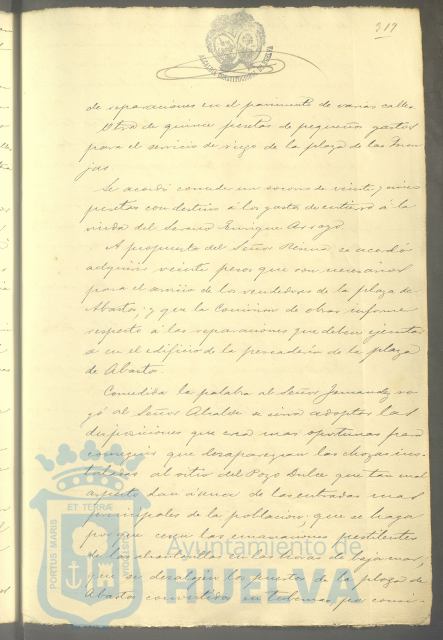 317
ALCALDIA CONSTITUCIONAL DE HUELVA
de reparaciones en el pavimento de varias calles
Otra de quince pesetas de pequeños gastos
para el servicio de riego de la plaza de las Mon
jas.
Se acordó conceder un socorro de veinte y cinco
pesetas con destino á los gastos de entierro á la
viuda del Sereno Enrique Arroyo.
A propuesta del Señor se acordó
adquirir veinte pesos que son necesarios
para el servicio de los vendedores de la plaza de
Abastos; y que la Comision de obras informe
respecto á las reparaciones que deben ejecutar
se en el edificio de la pescaderia de la plaza
de Abasto.
Concedida la palabra al Señor ro
gó al Señor Alcalde se sirva adoptar las
disposiciones que crea mas oportunas para
conseguir que desaparezcan las chozas ins
taladas al sitio del Pozo Dulce que tan mal
aspecto dan á una de las entradas mas
principales de la poblacion; que se haga
por que cesen las emanaciones pestilentes
de
que se desalojen los puestos de la plaza de
Abastos convertidos en tabernas, por consi-
PORTUS MARIS ET TERRÆ CUSTODIA
Ayuntamiento de
HUELVA